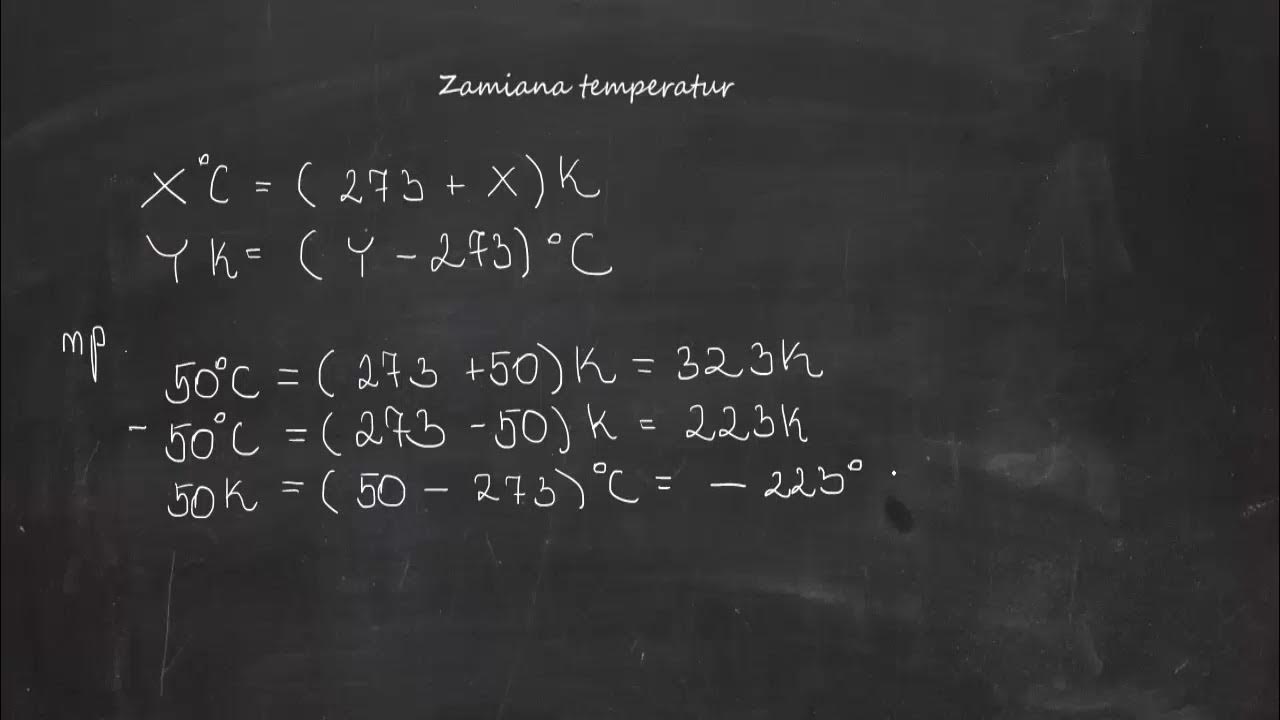 Zamiana temperatur
X°C = ( 273 + X ) K
Y K = ( Y - 273) °C
np.
50°C = ( 273 +50) K = 323K
- 50°C = ( 273 -50) K = 223K
50K = ( 50 - 273) °C = - 223° .